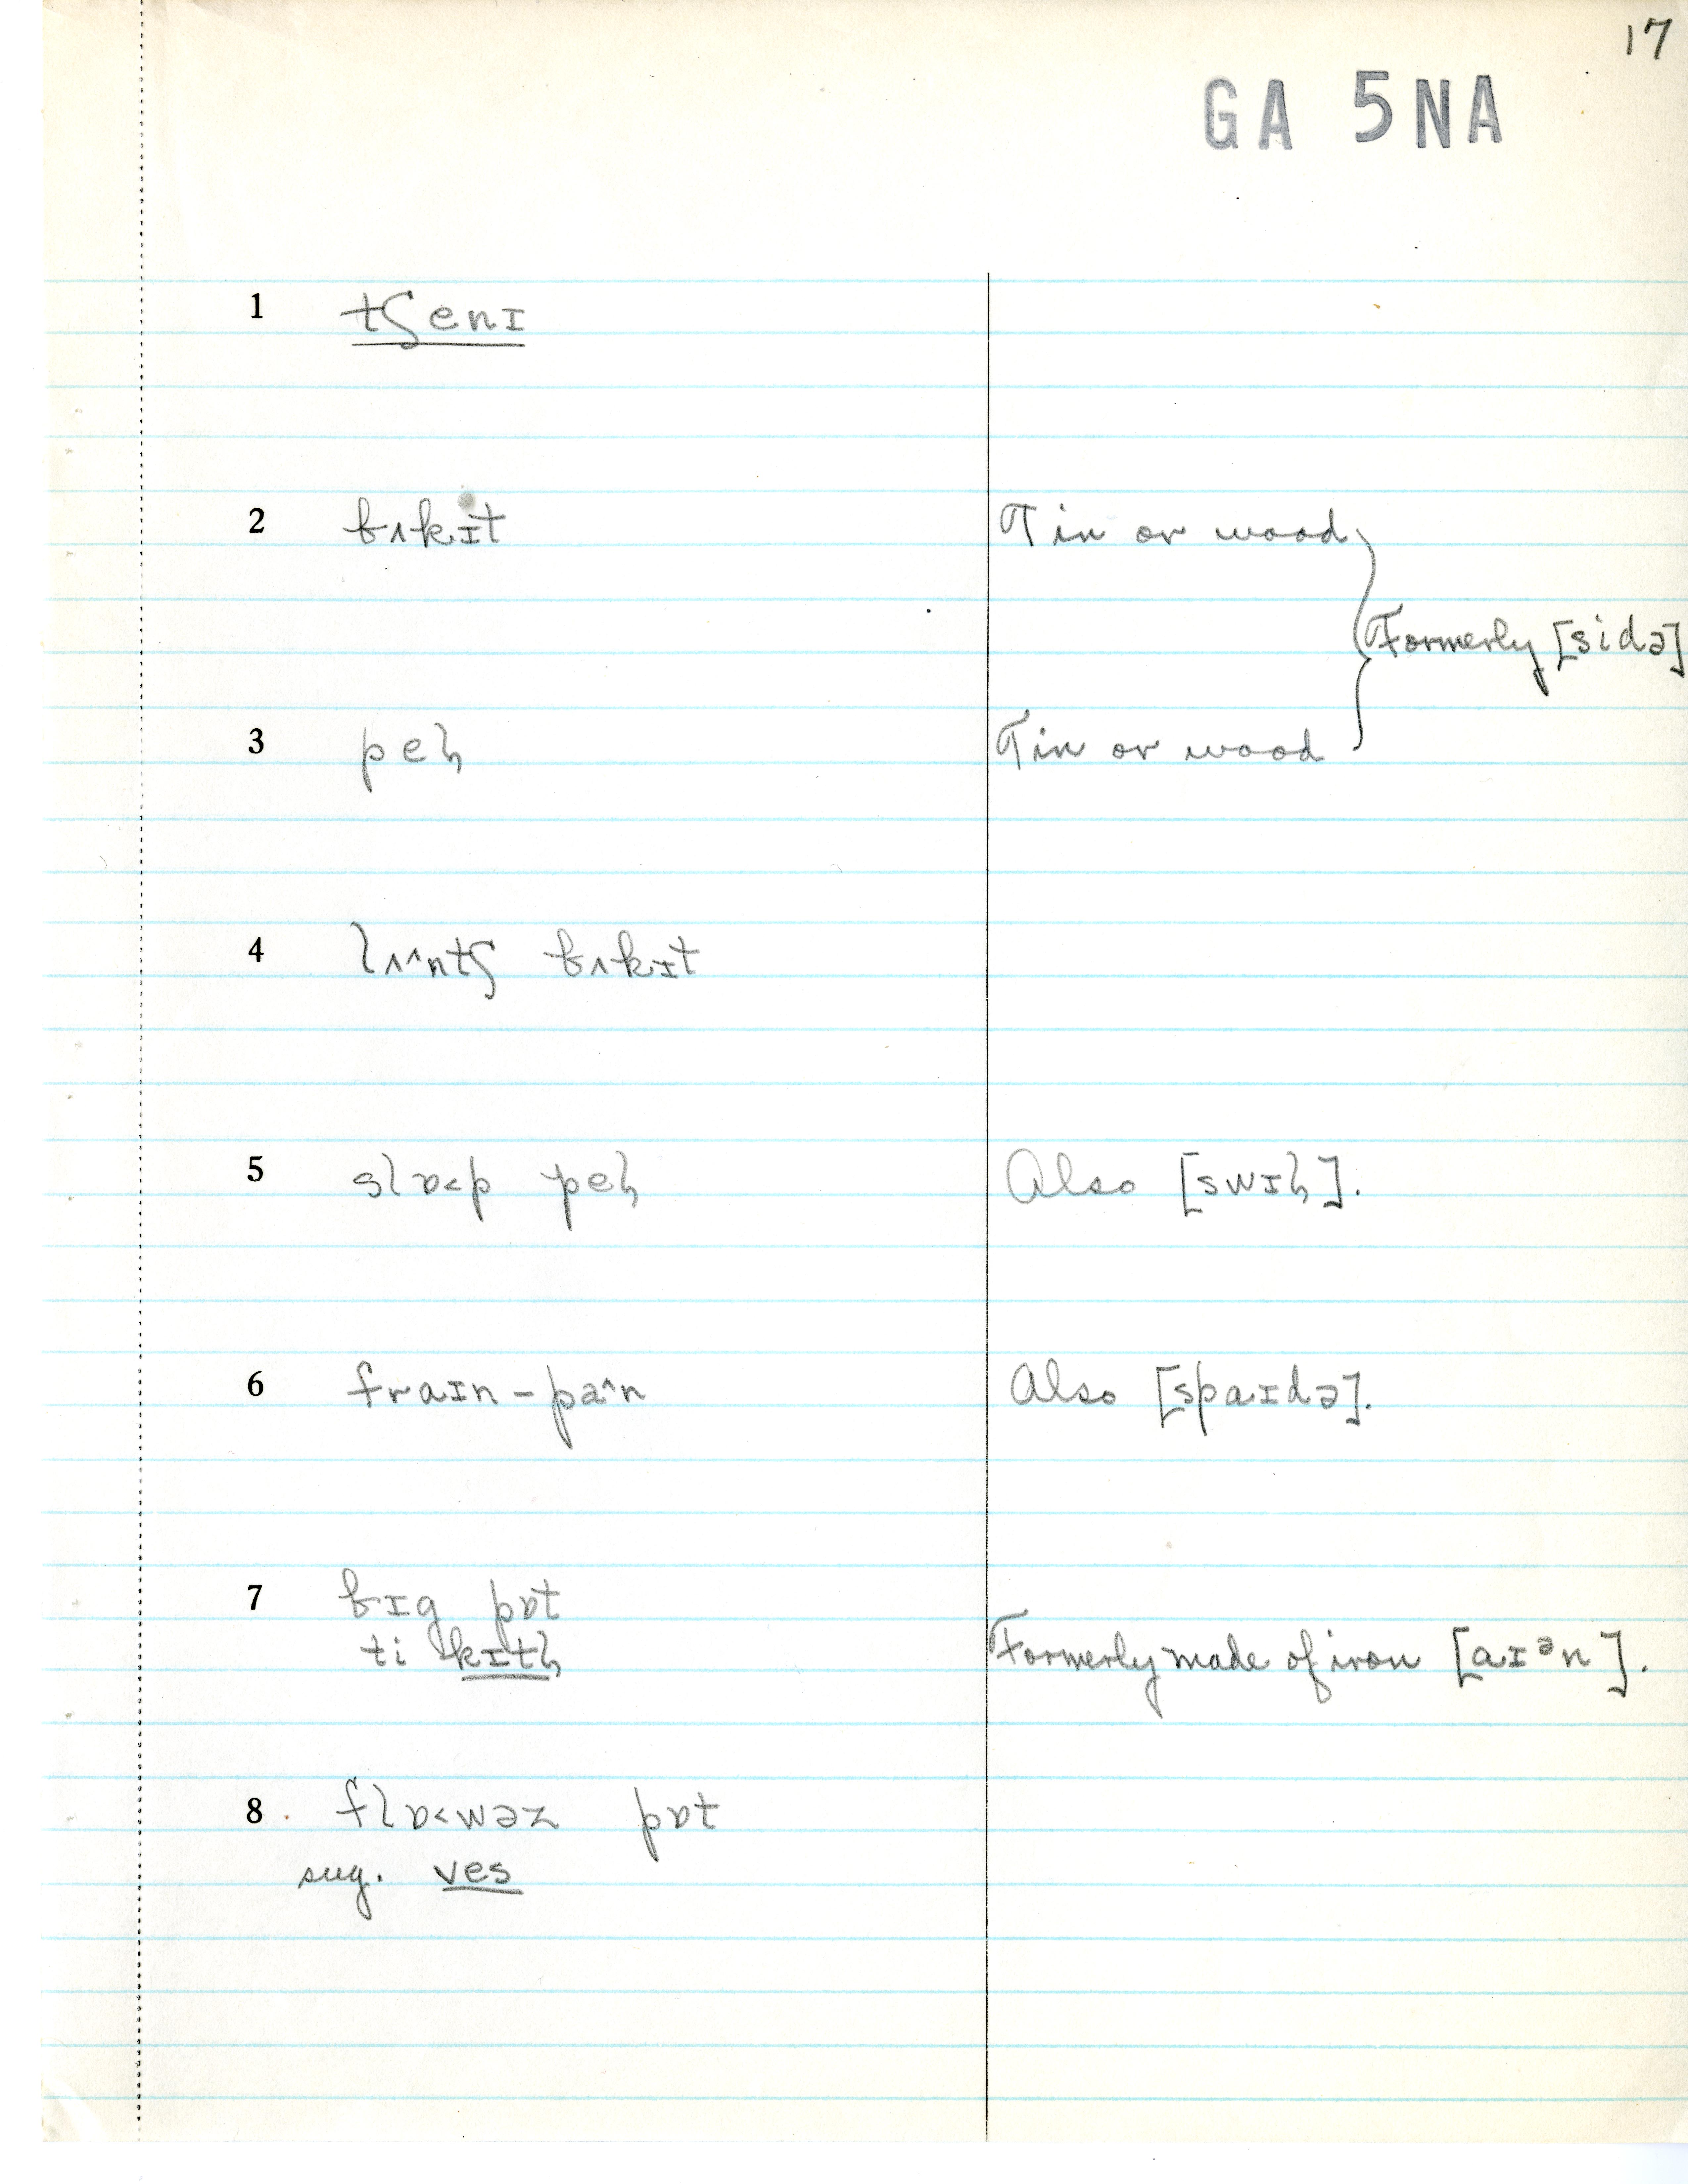 17
GA 5NA
1 tʃenɪ
2 bʌkɪt Tin or wood
Formerly [sidə]
3 peɫ Tin or wood
4 lʌ^ntʃ bʌkɪt
5 slɒ<p peɫ Also [swɪɫ].
6 fraɪn-pa^n Also [spaɪdə].
7 bɪg pɒt
ti kɪtɫ Formerly made of iron [aɪᵊn].
8 flɒ<wəz pɒt
sug. ves